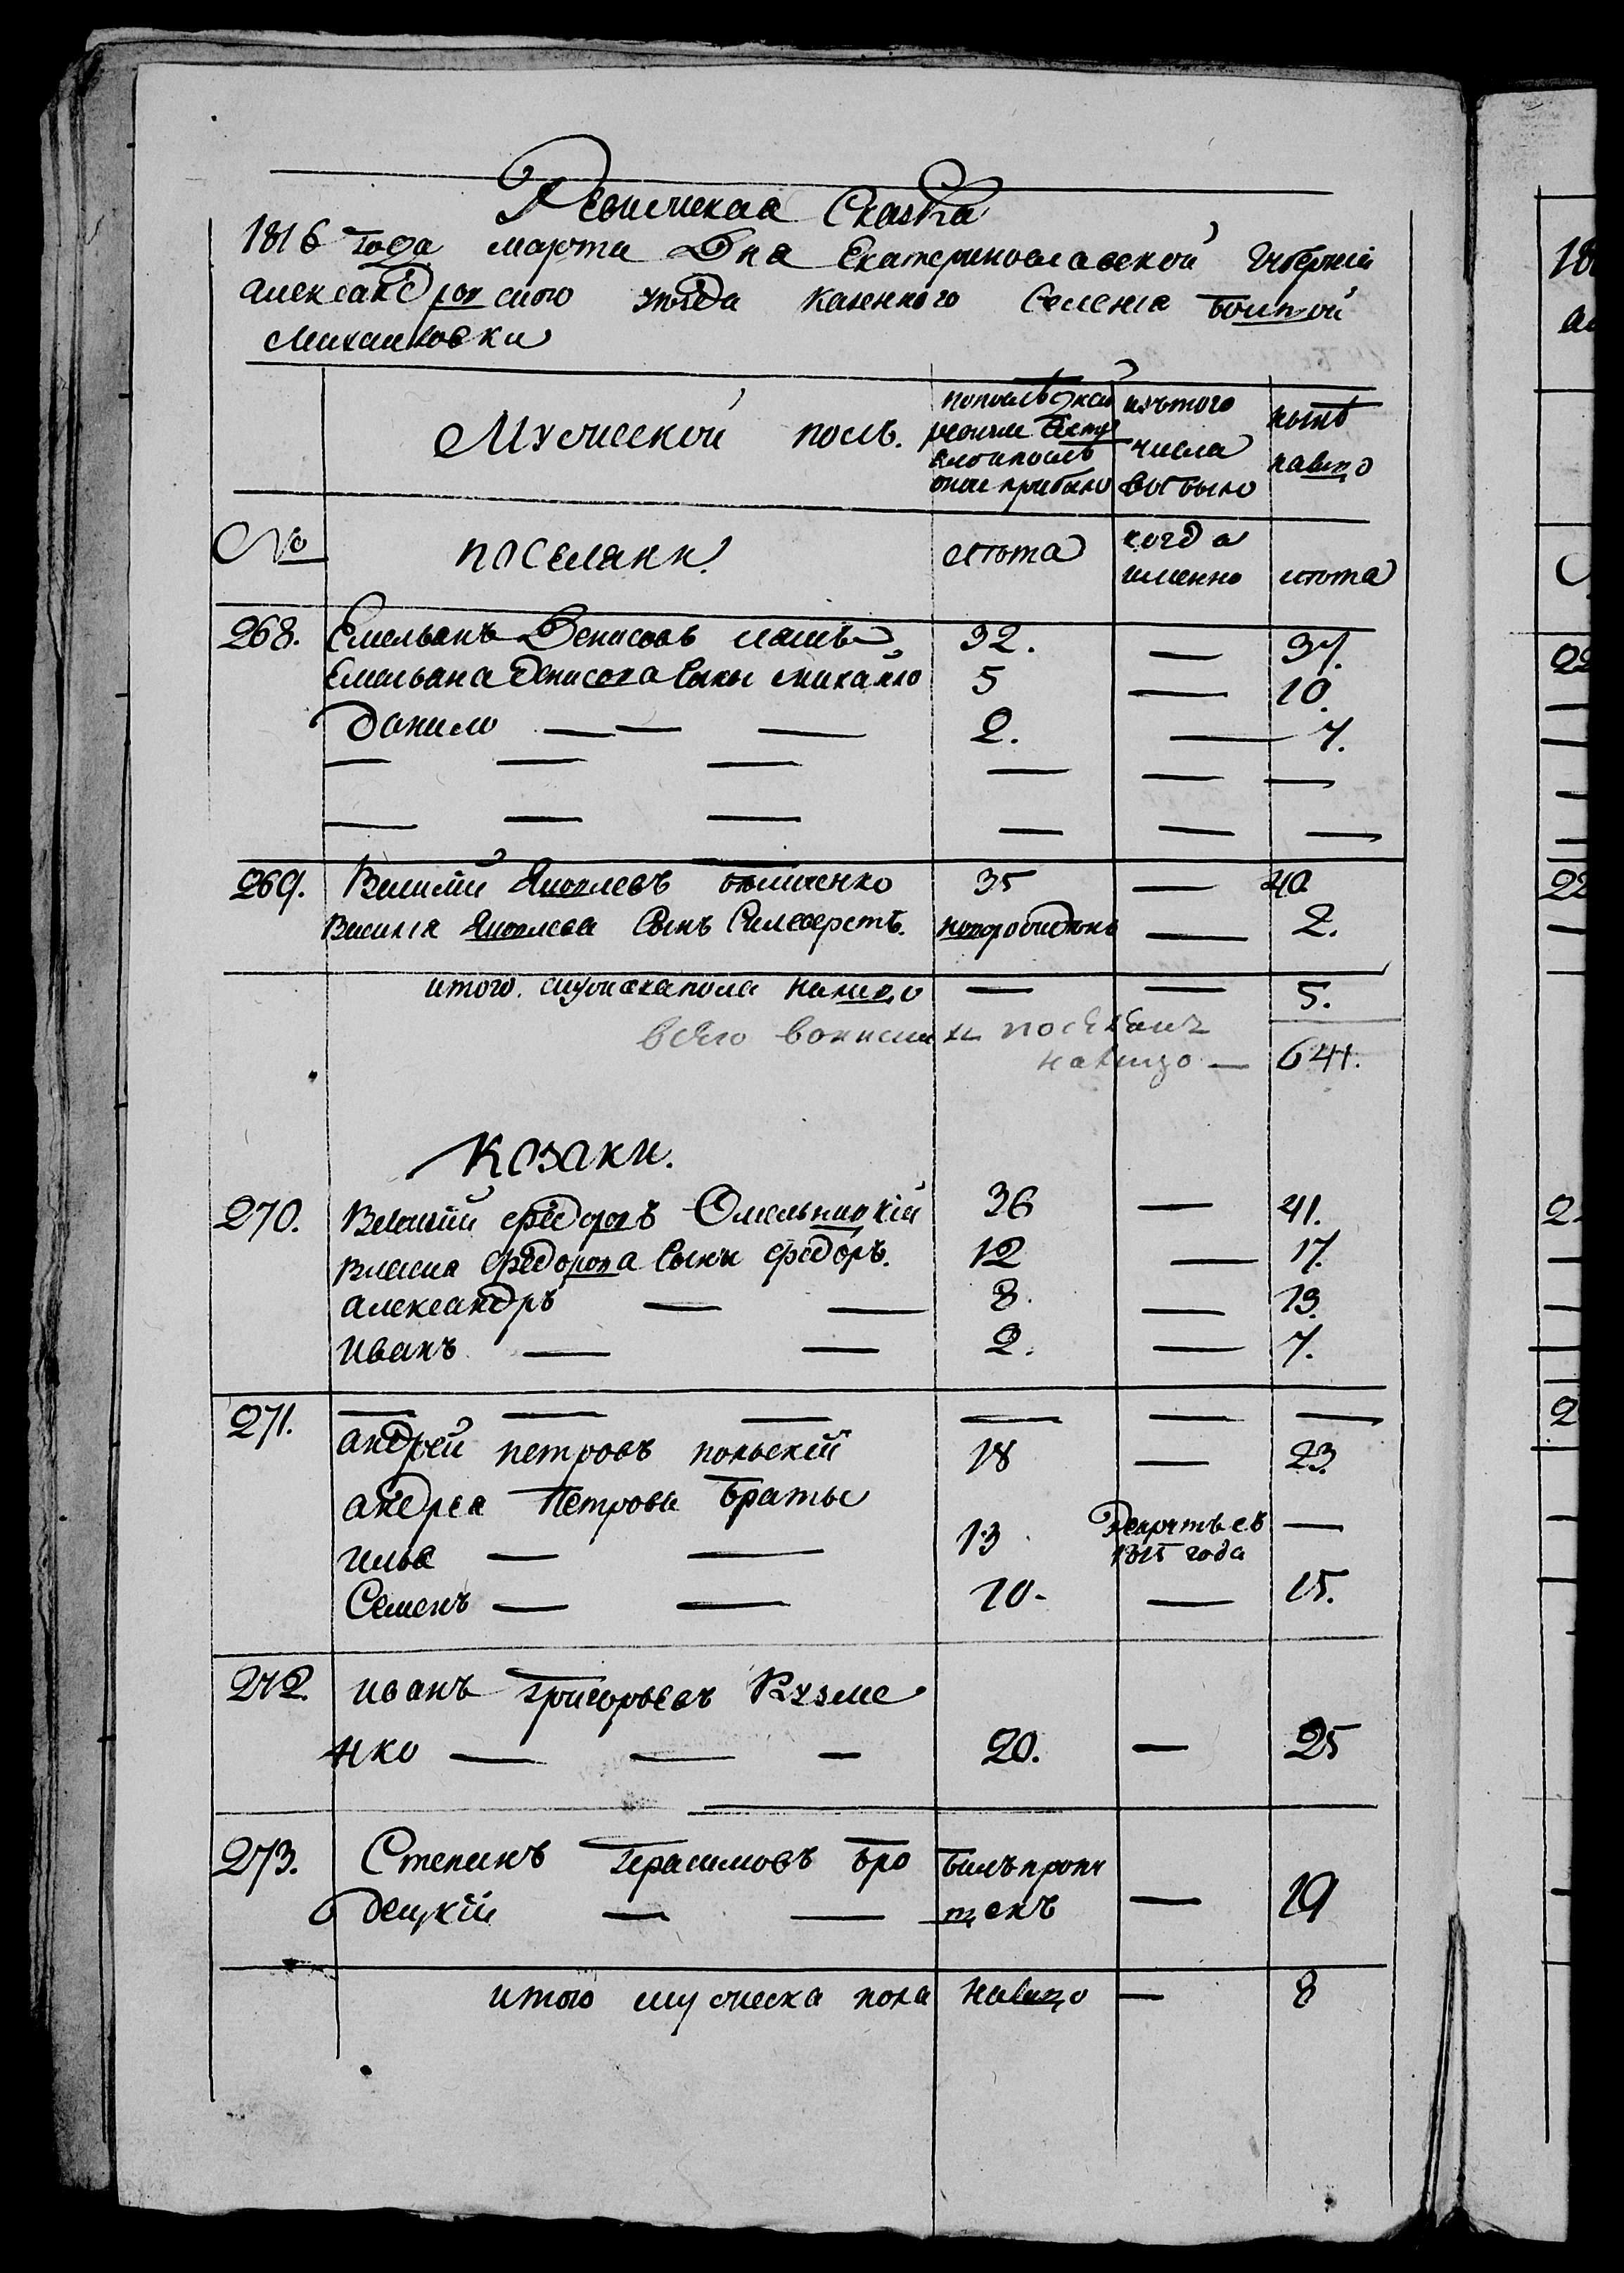 Ревижская Сказка
1816 года марта Дня Екатеринославской Губерніи
александровского уезда казенного Селенія болшой
Михаиловки
Мужеской полъ.
попоследней ревизіи состо яло ипослѣ оной прибыло
изътого числа выбыло
нынѣ налицо
№ поселяни. лѣта когда именно лѣта
268. Емельянъ Денисовъ 32. — 37.
Емельяна Денисова Сыны михайло 5 — 10.
Данило — — — 2. — 7.
— — — — — —
— — — — — —
269. Василий Яковлевъ беличенко 35 — 40
Василія Яковлева Сынъ Силверстъ. новорожденъ — 2.
итого. мужескапола налицо — — 5.
всего поселянъ
налицо — 641.
Козаки.
270. Василий Федоровъ Омельницкій 36 — 41.
Василия Федорова Сыны Федоръ. 12 — 17.
александръ — — 8. — 13.
иванъ — — 2. — 7.
271. — — — — — —
андрей петровъ польскій 18 — 23.
андрея Петрова братья
илья — — 13 1815 года —
Семенъ — — 10 — 15.
272. иванъ григорьевъ Кузме
нко — — — 20. — 25
273. Степанъ Герасимовъ бро былъ пропу
децкій — — щенъ — 19
итого мужеска пола налицо — 8